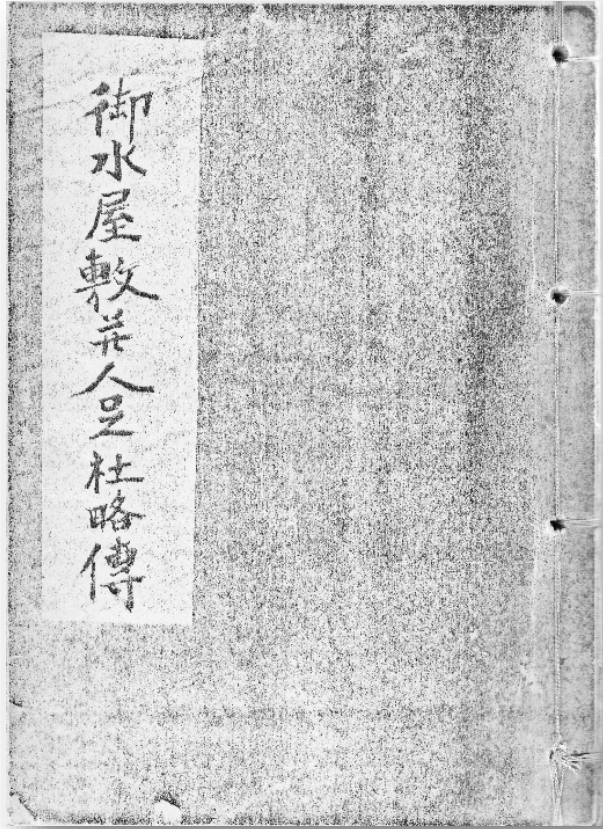 御水屋敷並人足社略傳